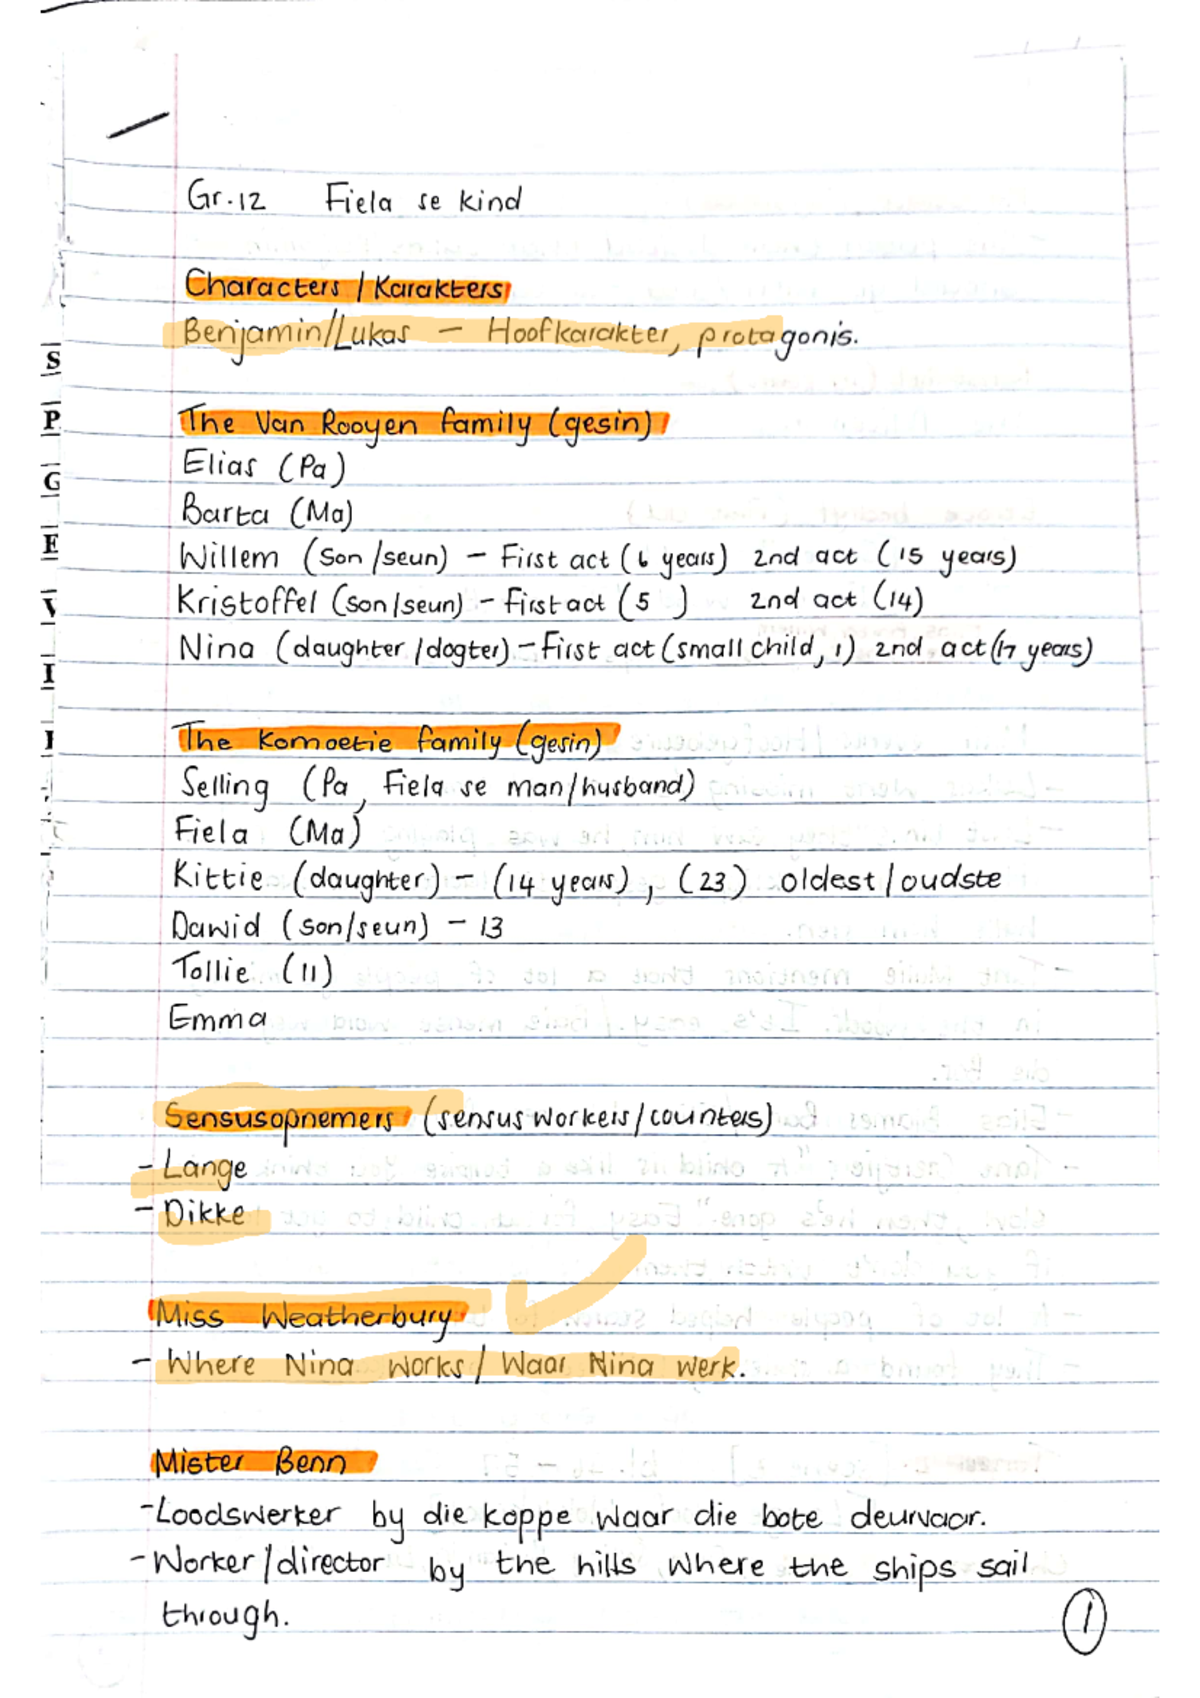 Gr.12 Fiela se kind
Characters / Karakters
Benjamin/Lukas – Hoofkarakter, protagonis.
The Van Rooyen family (gesin)
Elias (Pa)
Barta (Ma)
Willem (son/seun) – First act (6 years) 2nd act (15 years)
Kristoffel (son/seun) – First act (5 ) 2nd act (14)
Nina (daughter/dogter) – First act (small child, 1) 2nd act (17 years)
The Komoetie family (gesin)
Selling (Pa, Fiela se man/husband)
Fiela (Ma)
Kittie (daughter) – (14 years), (23) oldest/oudste
Dawid (son/seun) – 13
Tollie (11)
Emma
Sensusopnemers (sensus workers/counters)
- Lange
- Dikke
Miss Weatherbury
- Where Nina works/ Waar Nina werk.
Mister Benn
- Loodswerker by die koppe waar die bote deurvaar.
- Worker/director by the hills where the ships sail
through.
1
S
P
G
E
V
I